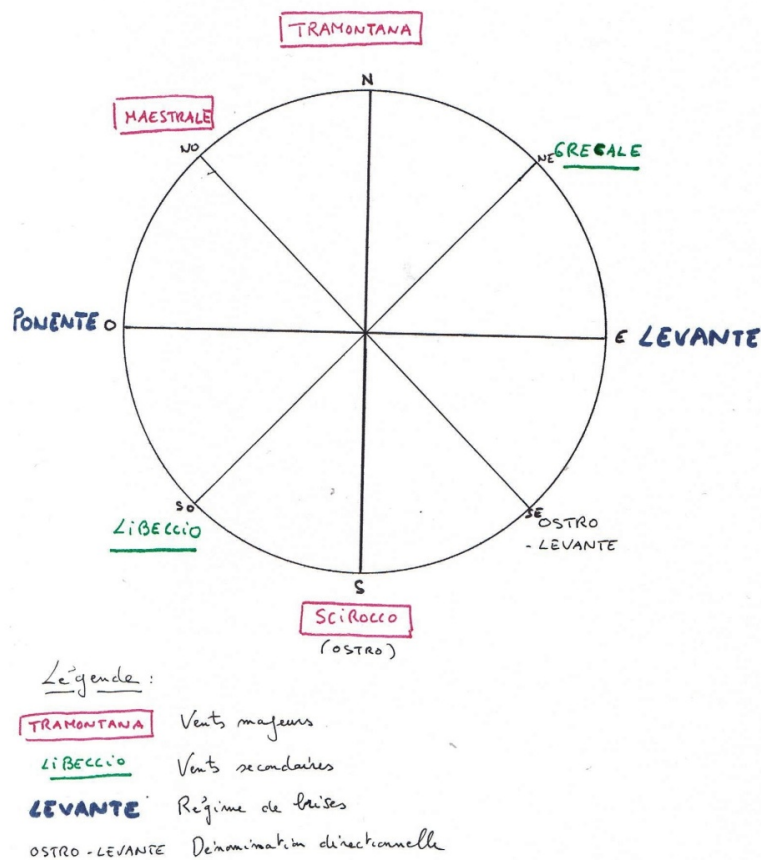 TRAMONTANA
N
MAESTRALE
NO
NE GRECALE
PONENTE O
E LEVANTE
SO
LIBECCIO
SE OSTRO
- LEVANTE
S
SCIROCCO
(OSTRO)
Légende :
TRAMONTANA Vents majeurs
LIBECCIO Vents secondaires
LEVANTE Régime de brises
OSTRO - LEVANTE Dénomination directionnelle